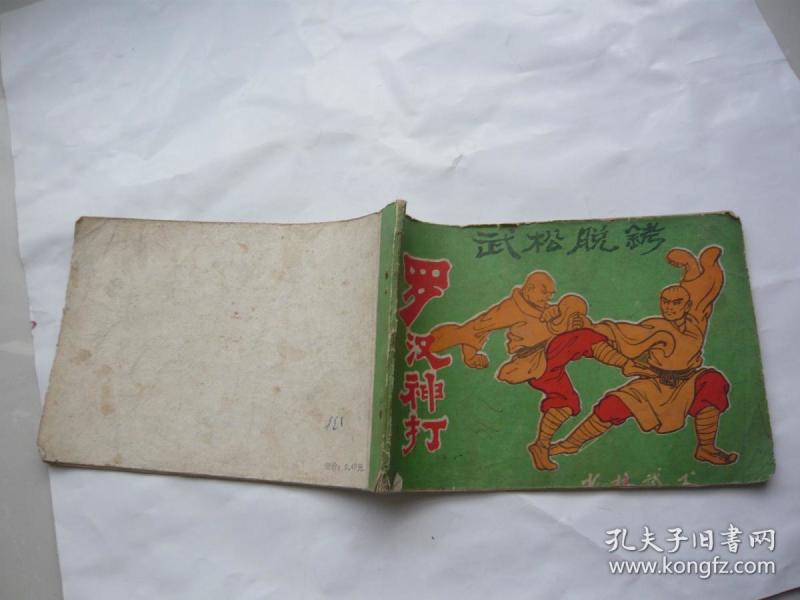 武松脱铐
罗汉神打
少林武术
151
孔夫子旧书网
www.kongfz.com